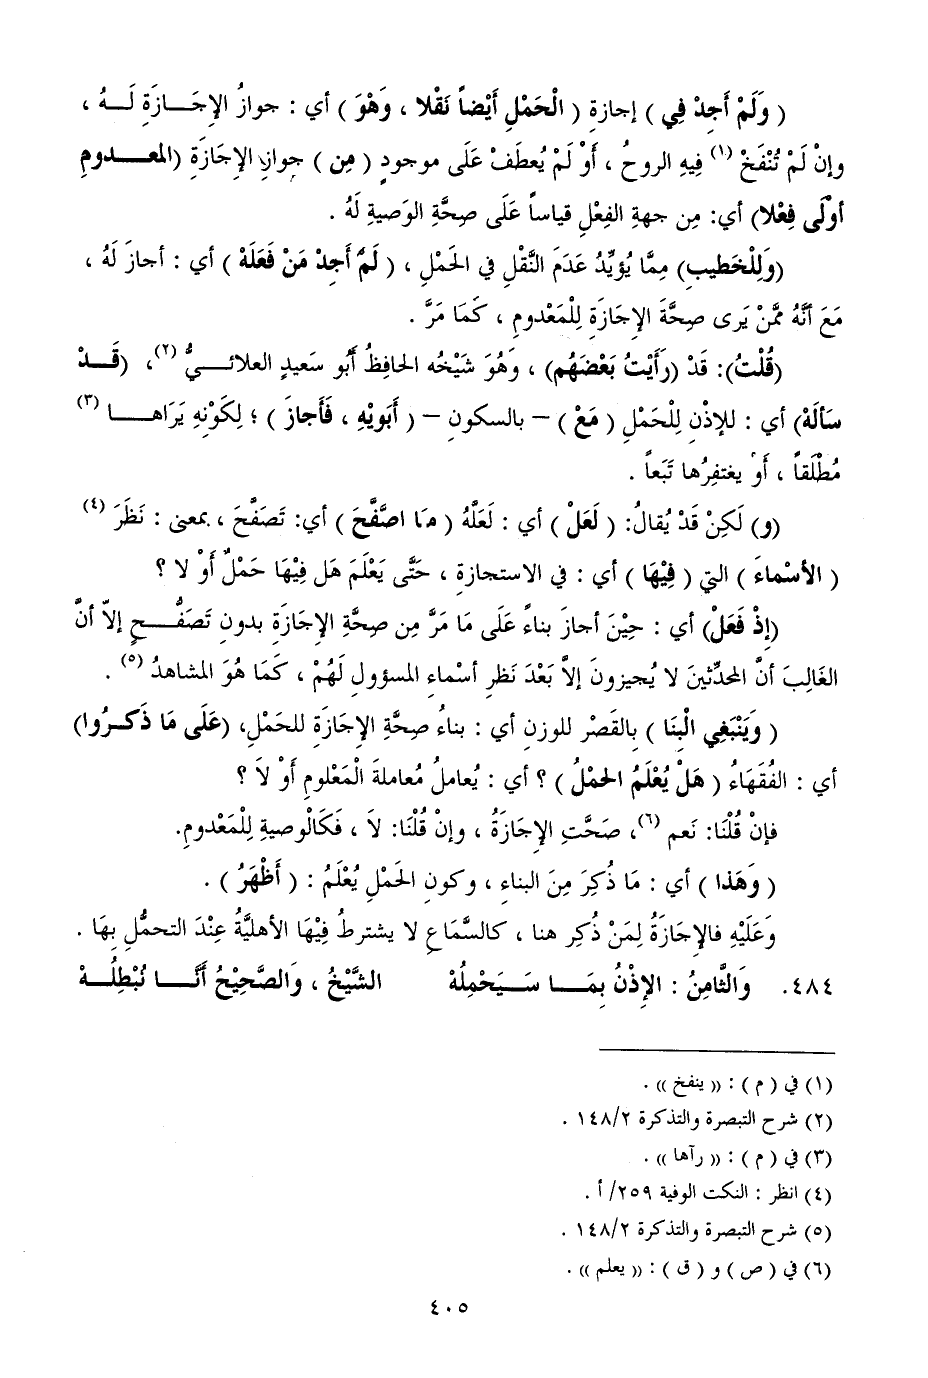 ( وَلَمْ أَجِدْ فِي ) إجازةِ ( الْحَمْلِ أَيْضاً نَقْلا ، وَهْوَ ) أي : جوازُ الإِجَـازَةِ لَـهُ ،
وإنْ لَمْ تُنْفَخْ (١) فِيهِ الروحُ ، أَوْ لَمْ يُعطَفْ عَلَى موجودٍ ( مِن ) جوازِ الإِجَازَةِ (المعـدومِ
أوْلَى فِعْلا) أي: مِن جهةِ الفِعْلِ قياساً عَلَى صِحَّةِ الوَصيةِ لَهُ .
(وَلِلْخَطيبِ) مِمَّا يُؤيِّدُ عَدَمَ النَّقْلِ فِي الحَمْلِ ، ( لَمْ أَجِدْ مَنْ فَعَلَهْ ) أي : أجازَ لَهُ ،
مَعَ أنَّهُ مِمَّنْ يَرى صِحَّةَ الإِجَازَةِ لِلْمَعْدومِ ، كَمَا مَرَّ .
(قُلْتُ): قَدْ (رَأَيْتُ بَعْضَهُم) ، وَهُوَ شَيْخُه الحافِظُ أَبُو سَعيدٍ العلائـيُّ (٢)، (قَـدْ
سَألَهْ) أي : للإذْنِ لِلْحَمْلِ ( مَعْ ) – بالسكونِ – ( أَبَويْهِ ، فَأَجازَ ) ؛ لِكَوْنِهِ يَرَاهـا (٣)
مُطْلَقاً ، أَوْ يغتفِرُها تَبَعاً .
(و) لَكِنْ قَدْ يُقالُ: ( لَعَلْ ) أي : لَعَلَّهُ ( مَا اصَّفَّحَ ) أي: تَصَفَّحَ ، بمعنى : نَظَرَ (٤)
( الأَسْماءَ ) التي ( فِيْهَا ) أي : في الاستجازةِ ، حَتَّى يَعْلَمَ هَل فِيْهَا حَمْلٌ أَوْ لا ؟
(إِذْ فَعَلْ) أي : حِيْنَ أجازَ بناءً عَلَى مَا مَرَّ مِن صِحَّةِ الإِجَازَةِ بدونِ تَصَفُّـحٍ إلاّ أنَّ
الغَالِبَ أنَّ المحدِّثينَ لا يُجيزونَ إلاَّ بَعْدَ نَظرِ أسْماءِ المسؤولِ لَهُمْ ، كَمَا هُوَ المشاهدُ (٥) .
( وَيَنْبَغِي الْبِنَا ) بالقَصْرِ للوزنِ أي : بناءُ صِحَّةِ الإِجَازَةِ للحَمْلِ، (عَلَى مَا ذَكَـرُوا)
أي : الفُقَهَاءُ ( هَلْ يُعْلَمُ الحَمْلُ ) ؟ أي : يُعاملُ مُعاملةَ الْمَعْلومِ أَوْ لاَ ؟
فإنْ قُلْنَا: نَعم (٦)، صَحَّتِ الإِجَازَةُ ، وإنْ قُلْنَا: لاَ ، فَكَالْوصيةِ لِلْمَعْدومِ.
( وَهَذا ) أي : مَا ذُكِرَ مِنَ البناءِ ، وكونِ الحَمْلِ يُعْلَمُ : ( أَظْهَرُ ) .
وَعَلَيْهِ فالإِجَازَةُ لِمَنْ ذُكِر هنا ، كالسَّمَاعِ لا يشترطُ فِيْهَا الأهليَّةُ عِنْدَ التحمُّلِ بِهَا .
٤٨٤. وَالثَّامِنُ : الإِذْنُ بِمَـا سَـيَحْمِلُهْ الشَّيْخُ ، وَالصَّحِيْحُ أَنَّـا نُبْطِلُـهْ
(١) في ( م ) : (( ينفخ )) .
(٢) شرح التبصرة والتذكرة ١٤٨/٢ .
(٣) في ( م ) : (( رآها )) .
(٤) انظر : النكت الوفية ٢٥٩/ أ .
(٥) شرح التبصرة والتذكرة ١٤٨/٢ .
(٦) في ( ص ) و ( ق ) : (( يعلم )) .
٤٠٥